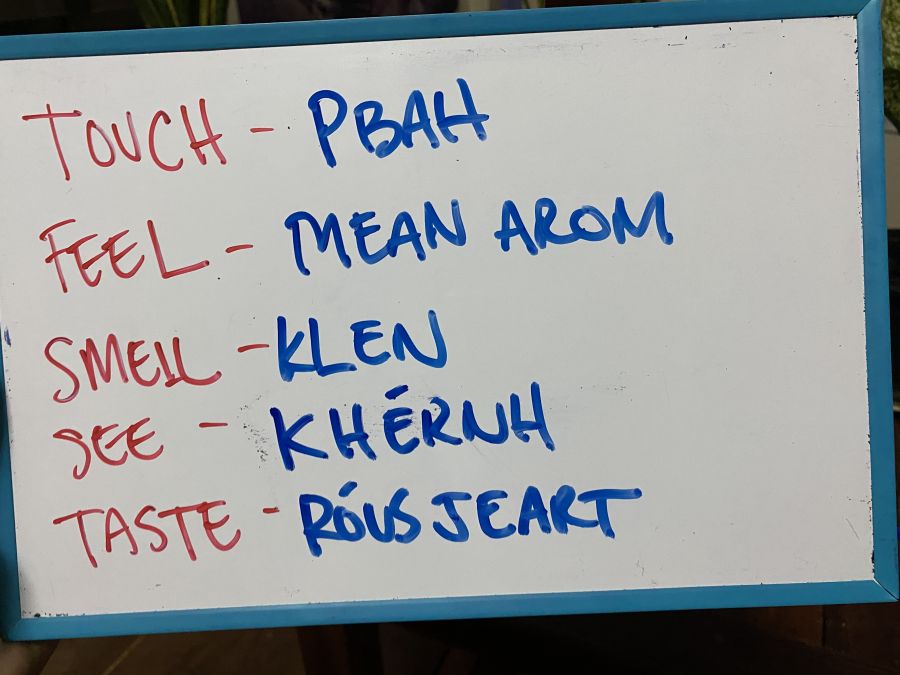 TOUCH - PBAH
FEEL - MEAN AROM
SMELL - KLEN
SEE - KHÉRNH
TASTE - RÓUS JEART